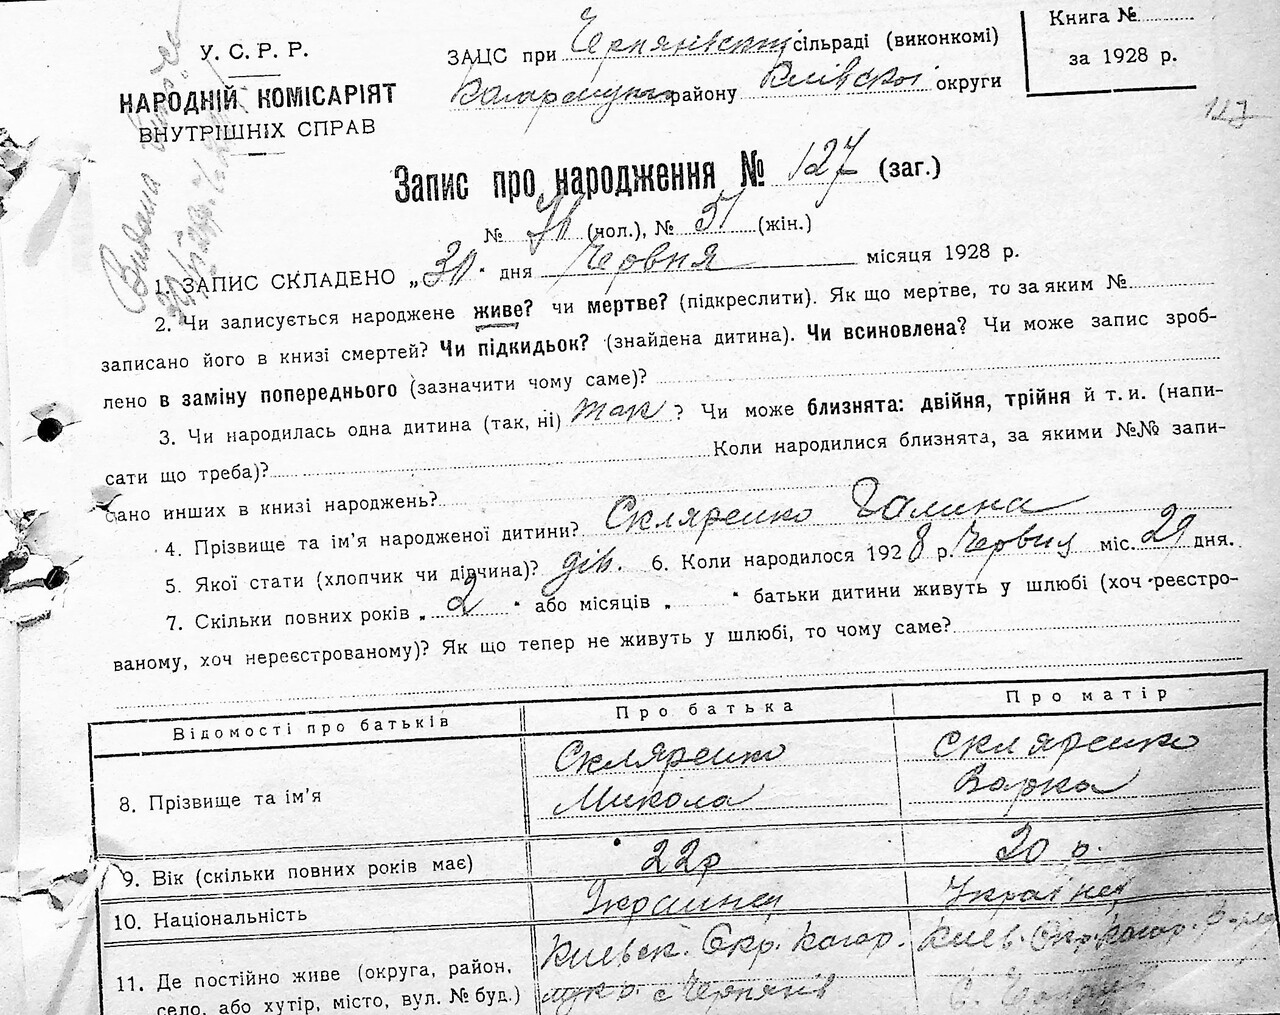 У. С. Р. Р.
НАРОДНІЙ КОМІСАРІЯТ
ВНУТРІШНІХ СПРАВ
ЗАЦС при сільраді (виконкомі)
району Київської округи
Книга №
за 1928 р.
127
Видана
Запис про народження № 127 (заг.)
№ (чол.), № 51 (жін.)
1. ЗАПИС СКЛАДЕНО „30" дня Червня місяця 1928 р.
2. Чи записується народжене живе? чи мертве? (підкреслити). Як що мертве, то за яким №
записано його в книзі смертей? Чи підкидьок? (знайдена дитина). Чи всиновлена? Чи може запис зроб-
лено в заміну попереднього (зазначити чому саме)?
3. Чи народилась одна дитина (так, ні) так ? Чи може близнята: двійня, трійня й т. и. (напи-
сати що треба)? Коли народилися близнята, за якими №№ запи-
сано инших в книзі народжень?
4. Прізвище та ім'я народженої дитини? Скляренко Галина
5. Якої стати (хлопчик чи дівчина)? дів. 6. Коли народилося 1928 р. Червня міс. 29 дня.
7. Скільки повних років „2" або місяців „ " батьки дитини живуть у шлюбі (хоч реєстро-
ваному, хоч нереєстрованому)? Як що тепер не живуть у шлюбі, то чому саме?
Відомості про батьків Про батька Про матір
8. Прізвище та ім'я Скляренко Микола Скляренко Варка
9. Вік (скільки повних років має) 22 р 20 р.
10. Національність Украинец Українец
11. Де постійно живе (округа, район, Киевск. Окр. Кагар. Киев. Окр. Кагар.
село, або хутір, місто, вул. № буд.) с. Черпянів с.